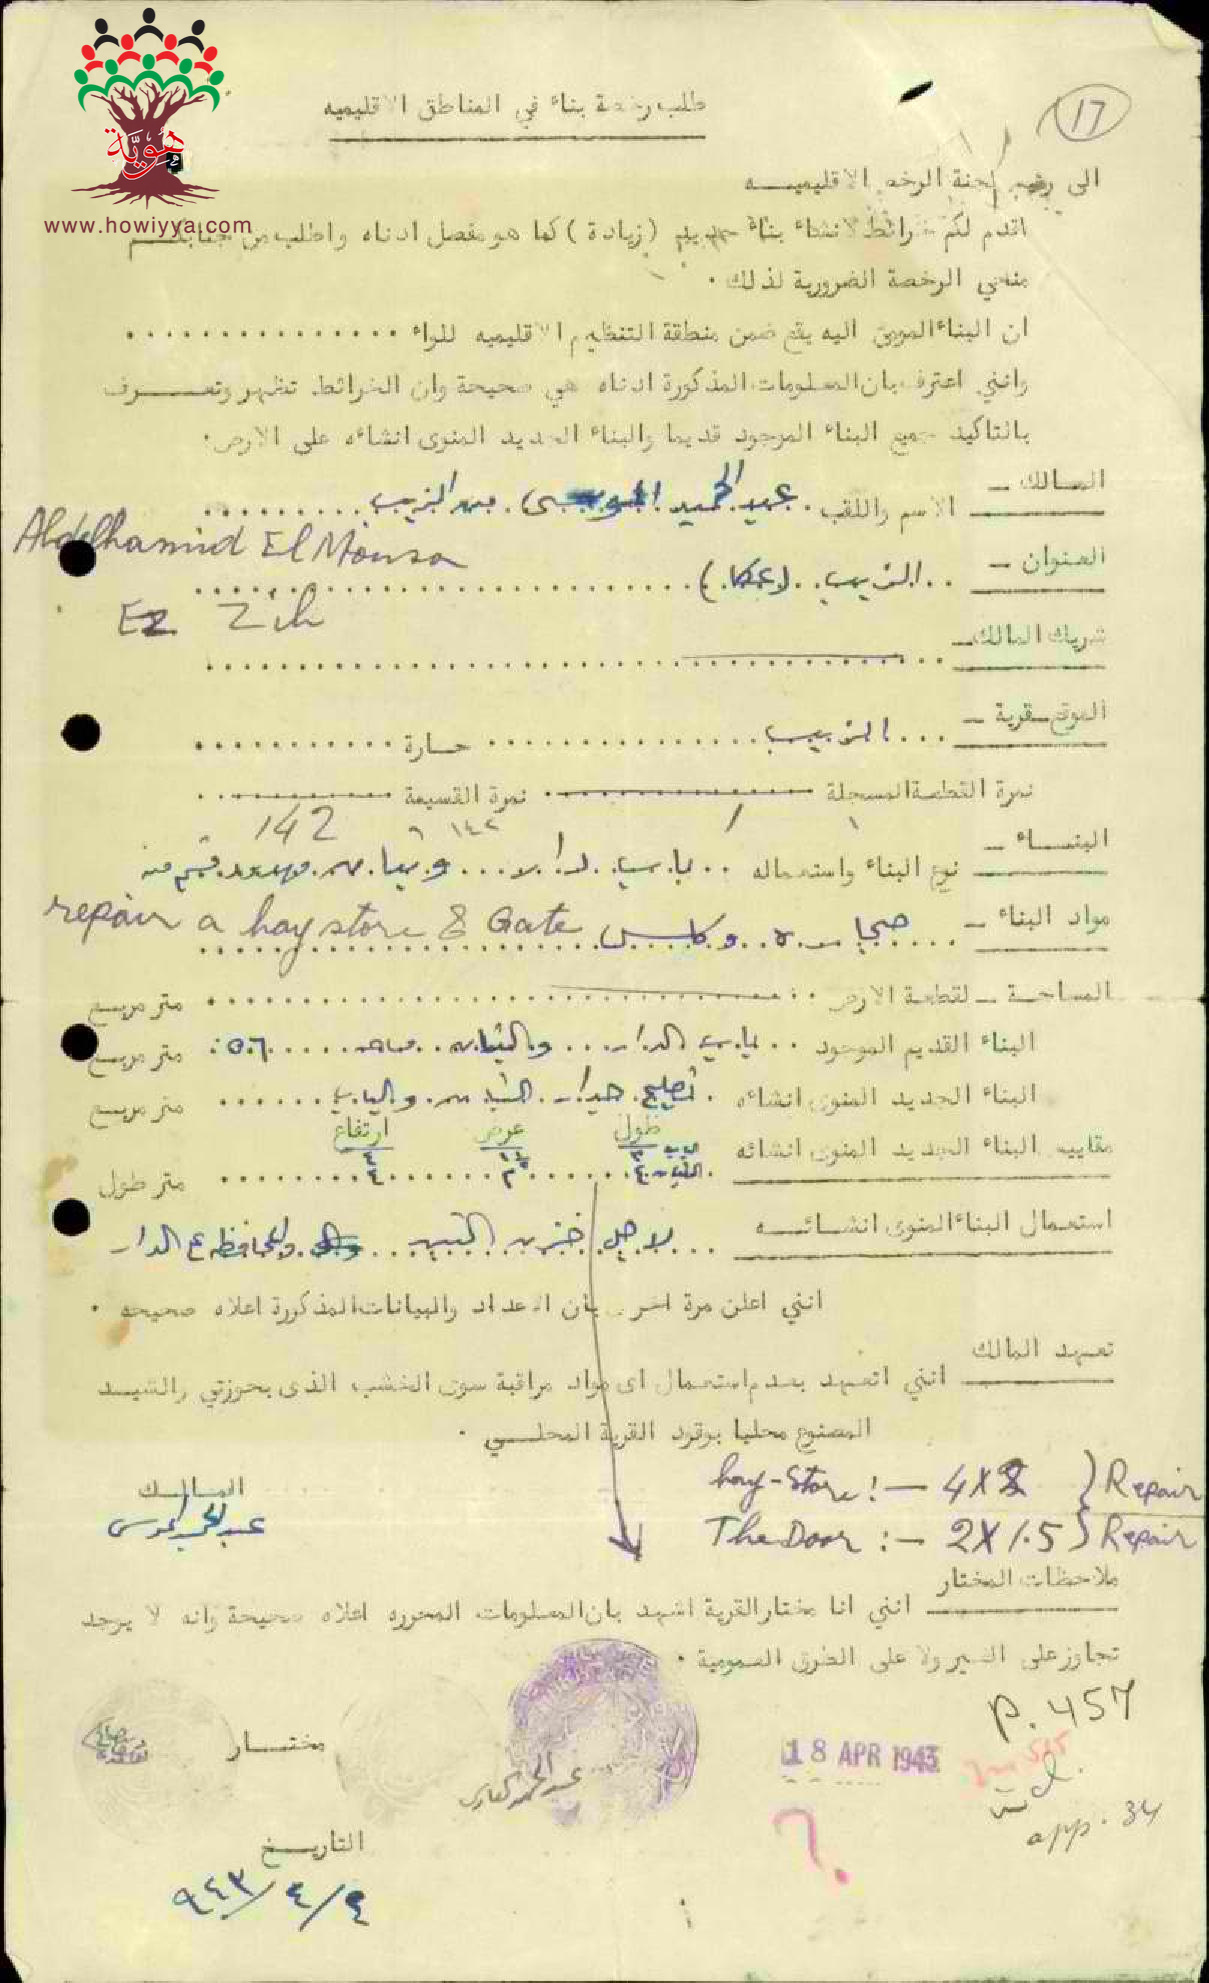 هوية
www.howiyya.com
17
طلب رخصة بناء في المناطق الاقليميه
الى رئيس لجنة الرخص الاقليميـــه
اقدم لكم خرائط لانشاء بناء جديد (زيادة) كما هو مفصل ادناه واطلب من جنابكـــم
منحي الرخصة الضرورية لذلك .
ان البناء المومئ اليه يقع ضمن منطقة التنظيم الاقليميه للواء
وانني اعترف بان المعلومات المذكورة ادناه هي صحيحة وان الخرائط تظهر وتعـــرف
بالتاكيد جميع البناء الموجود قديما والبناء الجديد المنوى انشاءه على الارض.
المالك – الاسم واللقب . عبد الحميد الموسى . من الزيب
Abdelhamid El Mousa
العنوان – الزيب (عكا)
Ez Zib
شريك المالك –
الموقع – قرية – الزيب حارة
نمرة القطعة المسجلة نمرة القسيمة
142
١ ١٤٢
البنـــاء – نوع البناء واستعماله باب دار وتبان مهدود قسم منه
مواد البناء – حجاره وكلس
repair a hay store & Gate
المساحة – لقطعة الارض متر مربع
البناء القديم الموجود باب الدار والتبان متر مربع
البناء الجديد المنوى انشاءه تصليح جدار التبان والباب متر مربع
طول عرض ارتفاع
مقاييه البناء الجديد المنوى انشائه متر طول
استعمال البناء المنوى انشائـــه لاجل خزن التبن وللمحافظه ع الدار
انني اعلن مرة اخرى بان الاعداد والبيانات المذكورة اعلاه صحيحه .
تعهد المالك
انني اتعهد بعدم استعمال اى مواد مراقبة سوى الخشب الذى بحوزتي والشيـــد
المصنوع محليا بوقود القرية المحلـــي .
hay-Store :– 4X3 } Repair
The Door :– 2X1.5 } Repair
المـالـك
عبد الحميد الموسى
ملاحظات المختار
انني انا مختار القرية اشهد بان المعلومات المحرره اعلاه صحيحة وانه لا يوجد
تجاوز على الغير ولا على الطرق العمومية .
P. 457
مختـــار
18 APR 1943
app. 34
?
التاريـــخ
٤/٤/٩٤٣